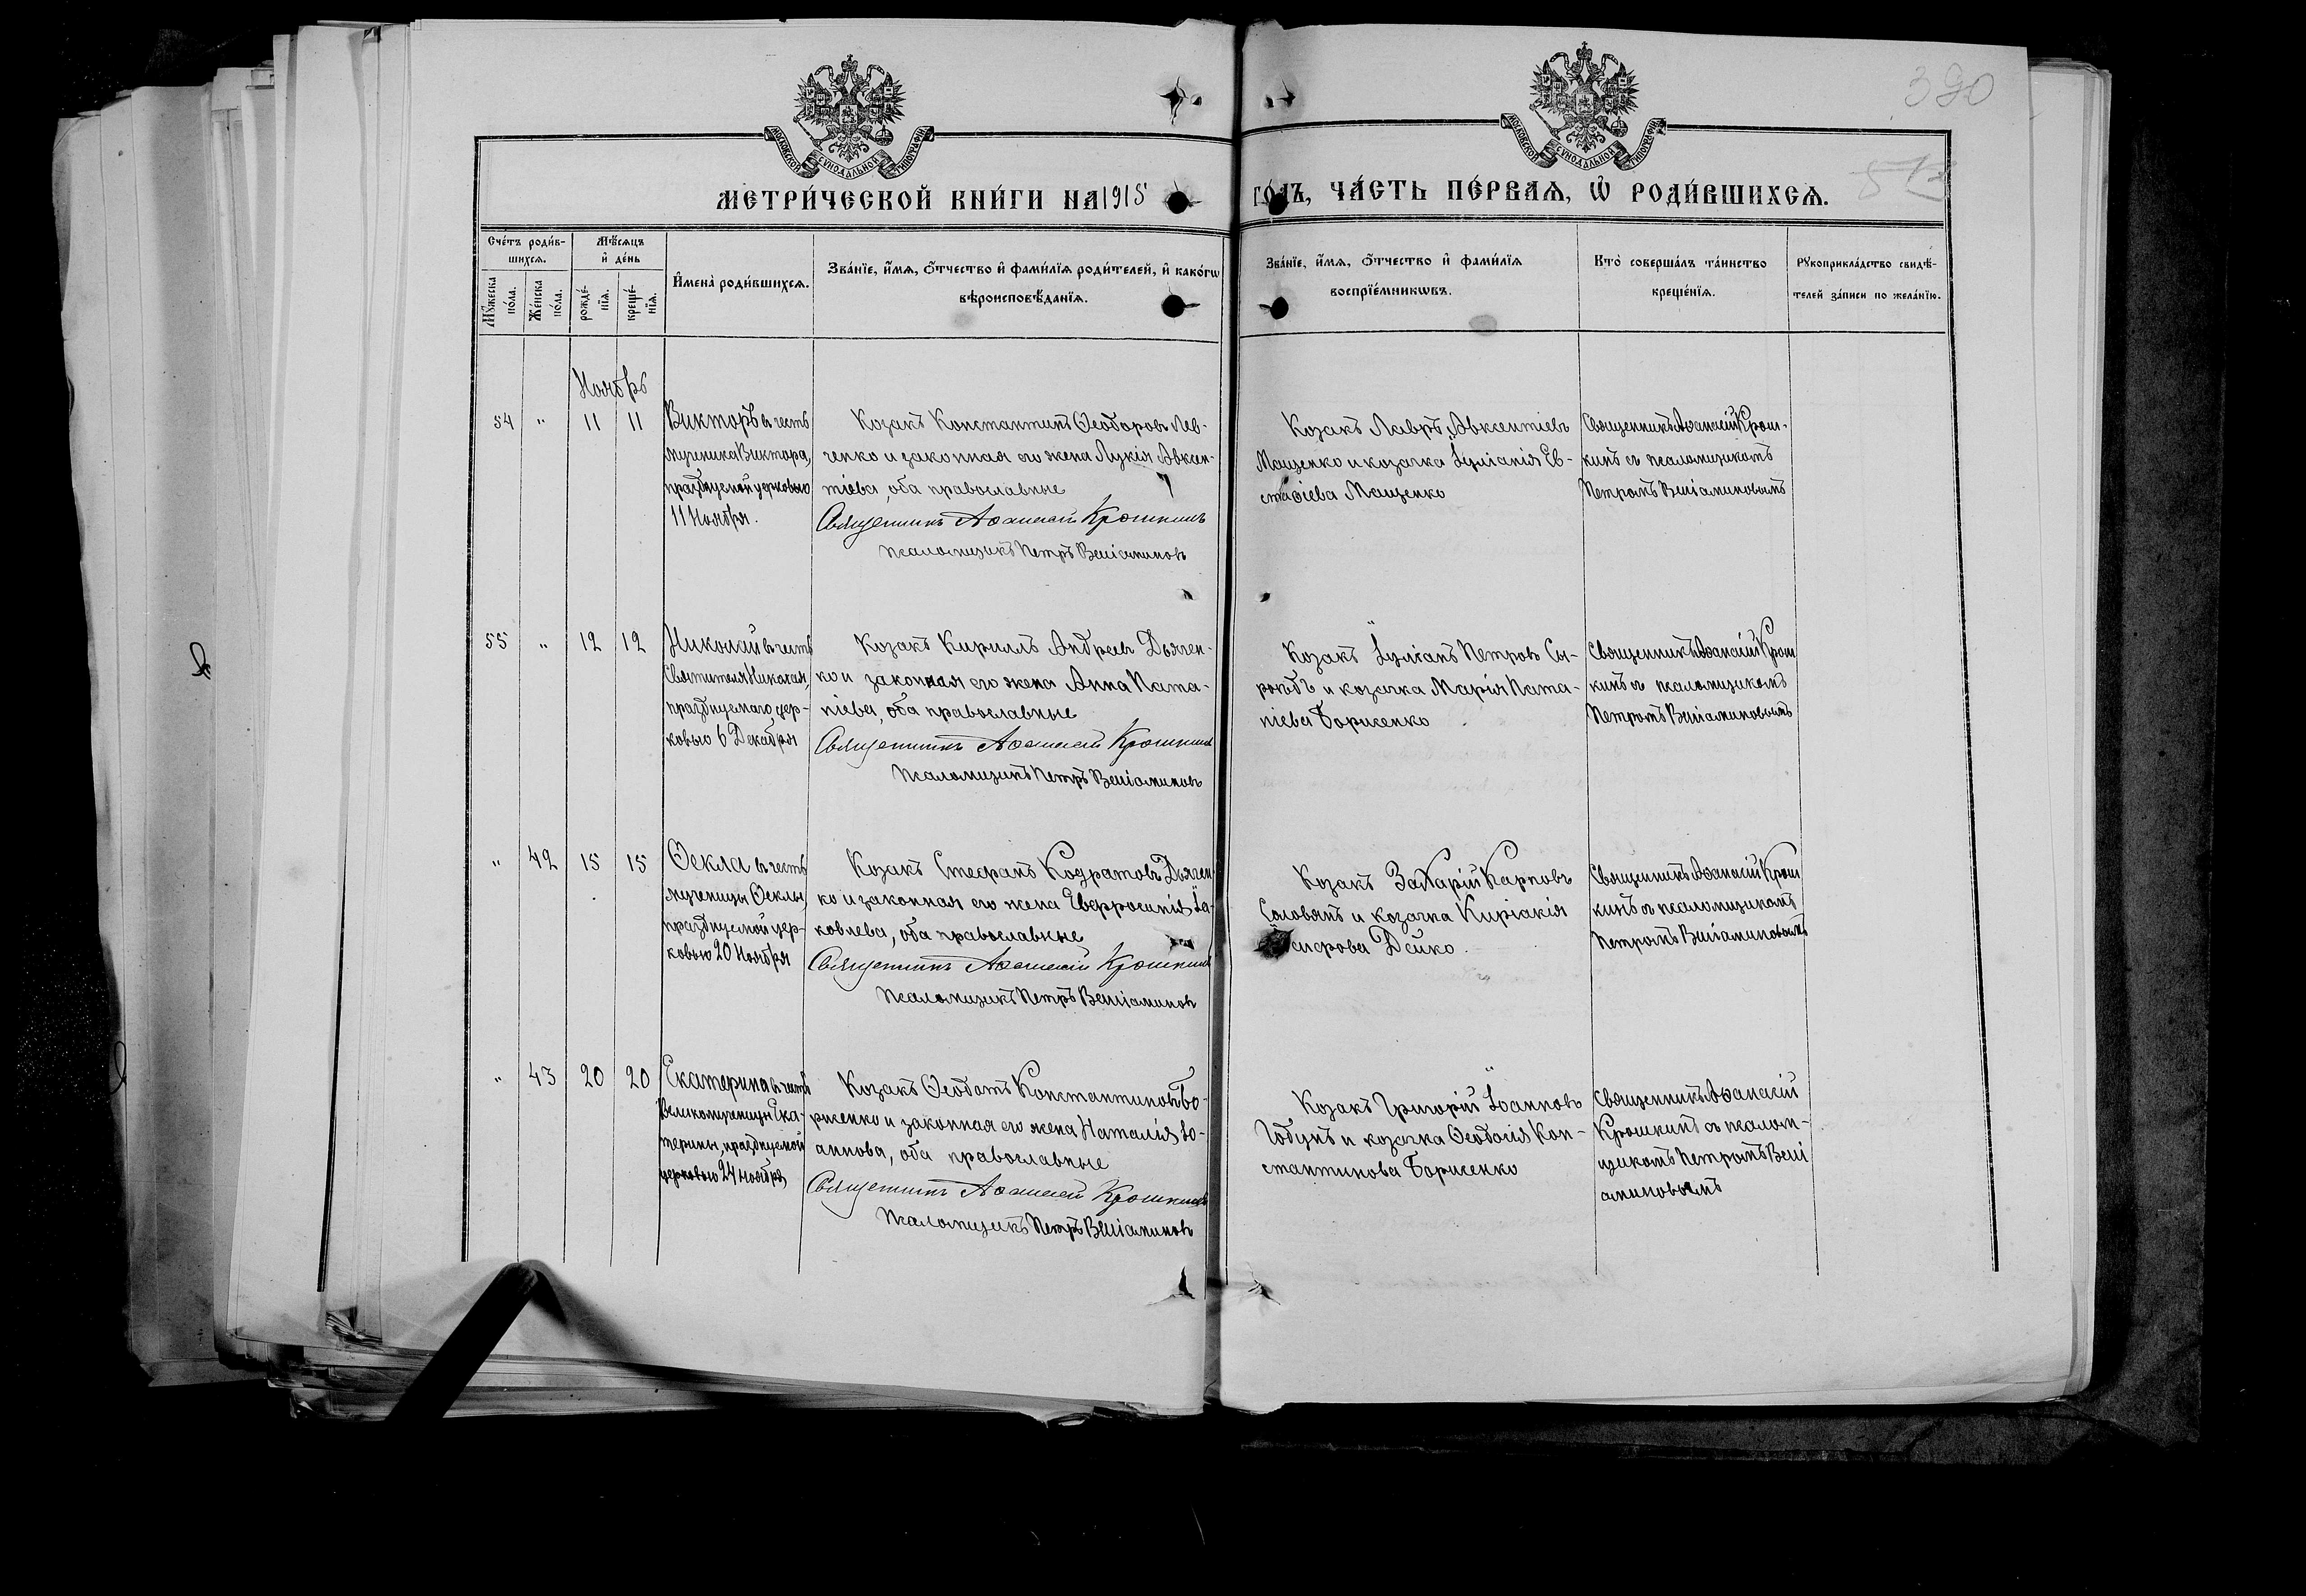 390
МОСКОВСКОЙ СУНОДАЛЬНОЙ ТИПОГРАФІИ
МОСКОВСКОЙ СУНОДАЛЬНОЙ ТИПОГРАФІИ
МЕТРИ́ЧЕСКОЙ КНИ́ГИ НА 1915
ГО́ДЪ, ЧА́СТЬ ПЕ́РВАЯ, Ѡ҆ РОДИ́ВШИХСЯ.
Сче́тъ роди́в-
шихся.
Мѣ́сяцъ
и҆ де́нь
Мꙋ́жеска по́ла.
Же́нска по́ла.
рожде́-
нїя.
креще́-
нїя.
И҆мена̀ роди́вшихся.
Зва́нїе, и҆́мя, ѻ҆́тчество и҆ фами́лїя роди́телей, и҆ како́гѡ
вѣроисповѣ́данїя.
Зва́нїе, и҆́мя, ѻ҆́тчество и҆ фами́лїя
воспрїе́мникѡвъ.
Кто̀ соверша́лъ та́инство
креще́нїя.
Рꙋкоприкла́дство свидѣ́-
телей за́писи по жела́нїю.
Ноябрь
54 " 11 11
Викторъ въ честь
мученика Виктора,
празднуемой церковью
11 Ноября.
Козакъ Константинъ Ѳеодоровъ Лев-
ченко и законная его жена Лукія Авксен-
тіева, оба православные
Священникъ Аѳанасій Крошкинъ
Псаломщикъ Петръ Веніаминовъ
Козакъ Лавръ Авксентіевъ
Мащенко и козачка Іуліанія Ев-
стафіева Мащенко
Священникъ Аѳанасій Крош-
кинъ съ псаломщикомъ
Петромъ Веніаминовымъ
55 " 12 12
Николай въ честь
Святителя Николая,
празднуемаго цер-
ковью 6 Декабря
Козакъ Кириллъ Андреевъ Дьячен-
ко и законная его жена Анна Пата-
піева, оба православные
Священникъ Аѳанасій Крошкинъ
Псаломщикъ Петръ Веніаминовъ
Козакъ Іуліанъ Петровъ Сы-
роѣдъ и козачка Марія Пата-
піева Борисенко
Священникъ Аѳанасій Крош
кинъ съ псаломщикомъ
Петромъ Веніаминовымъ
" 42 15 15
Ѳекла въ честь
мученицы Ѳеклы,
празднуемой цер-
ковью 20 Ноября
Козакъ Стефанъ Кодратовъ Дьячен
ко и законная его жена Евфросинія Іа-
ковлева, оба православные
Священникъ Аѳанасій Крошкинъ
Псаломщикъ Петръ Веніаминовъ
Козакъ Захарій Карповъ
Соловянъ и козачка Киріакія
Дейко.
Священникъ Аѳанасій Крош
кинъ съ псаломщикомъ
Петромъ Веніаминовымъ
" 43 20 20
Екатерина въ честь
Великомученицы Ека-
терины, празднуемой
церковью 24 ноября
Козакъ Ѳеодотъ Константиновъ Бо-
рисенко и законная его жена Наталія Іо-
аннова, оба православные
Священникъ Аѳанасій Крошкинъ
Псаломщикъ Петръ Веніаминовъ
Козакъ Григорій Іоанновъ
Гобунъ и козачка Ѳеодосія Кон-
стантинова Борисенко
Священникъ Аѳанасій
Крошкинъ съ псалом-
щикомъ Петромъ Вені
аминовымъ